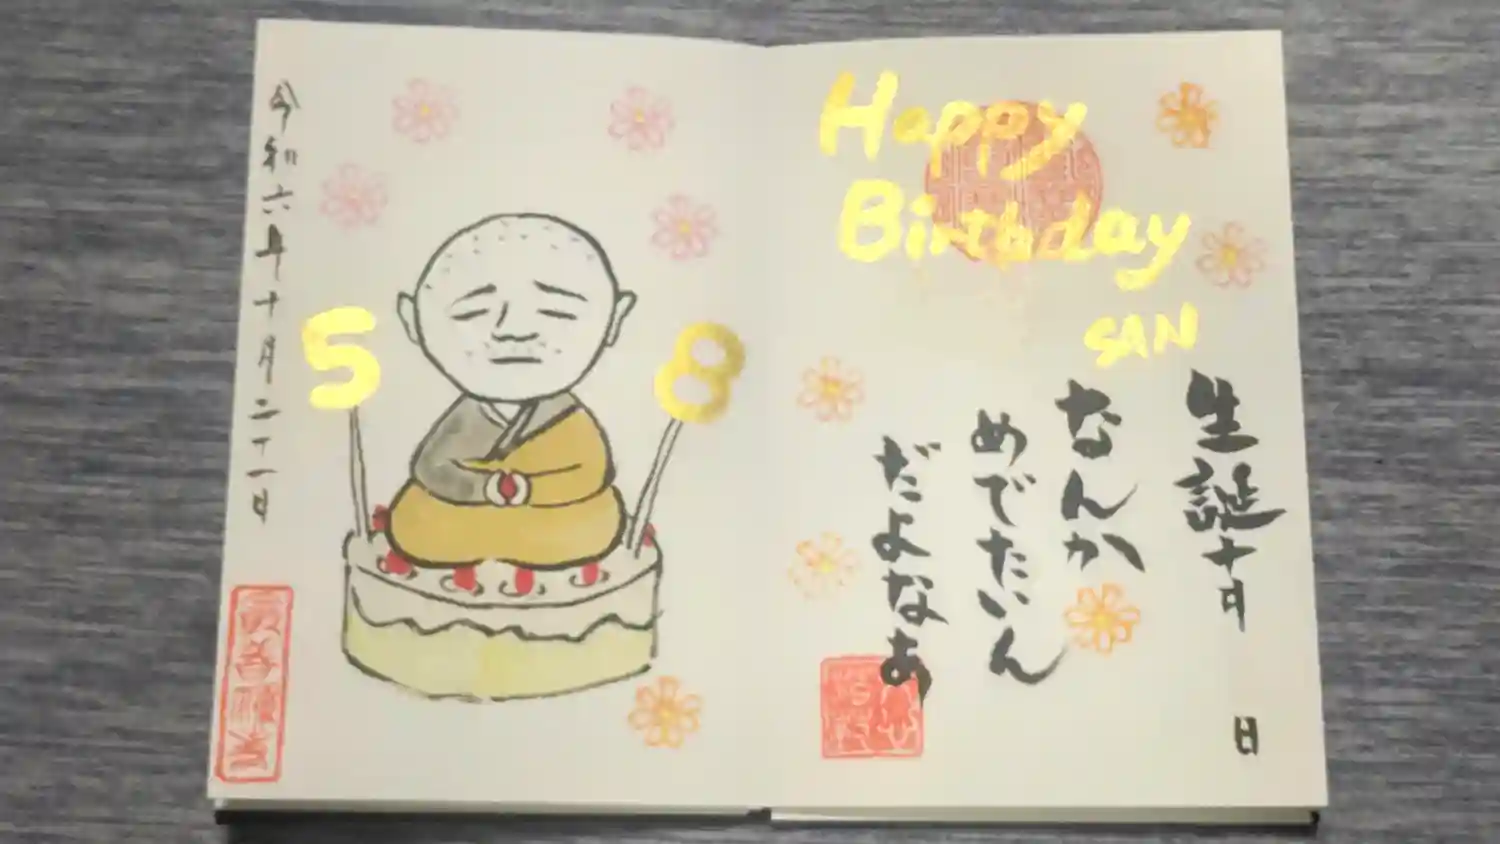 Happy
Birthday
SAN
生誕十月 日
なんか
めでたいん
だよなぁ
5 8
令和六年十月二十一日